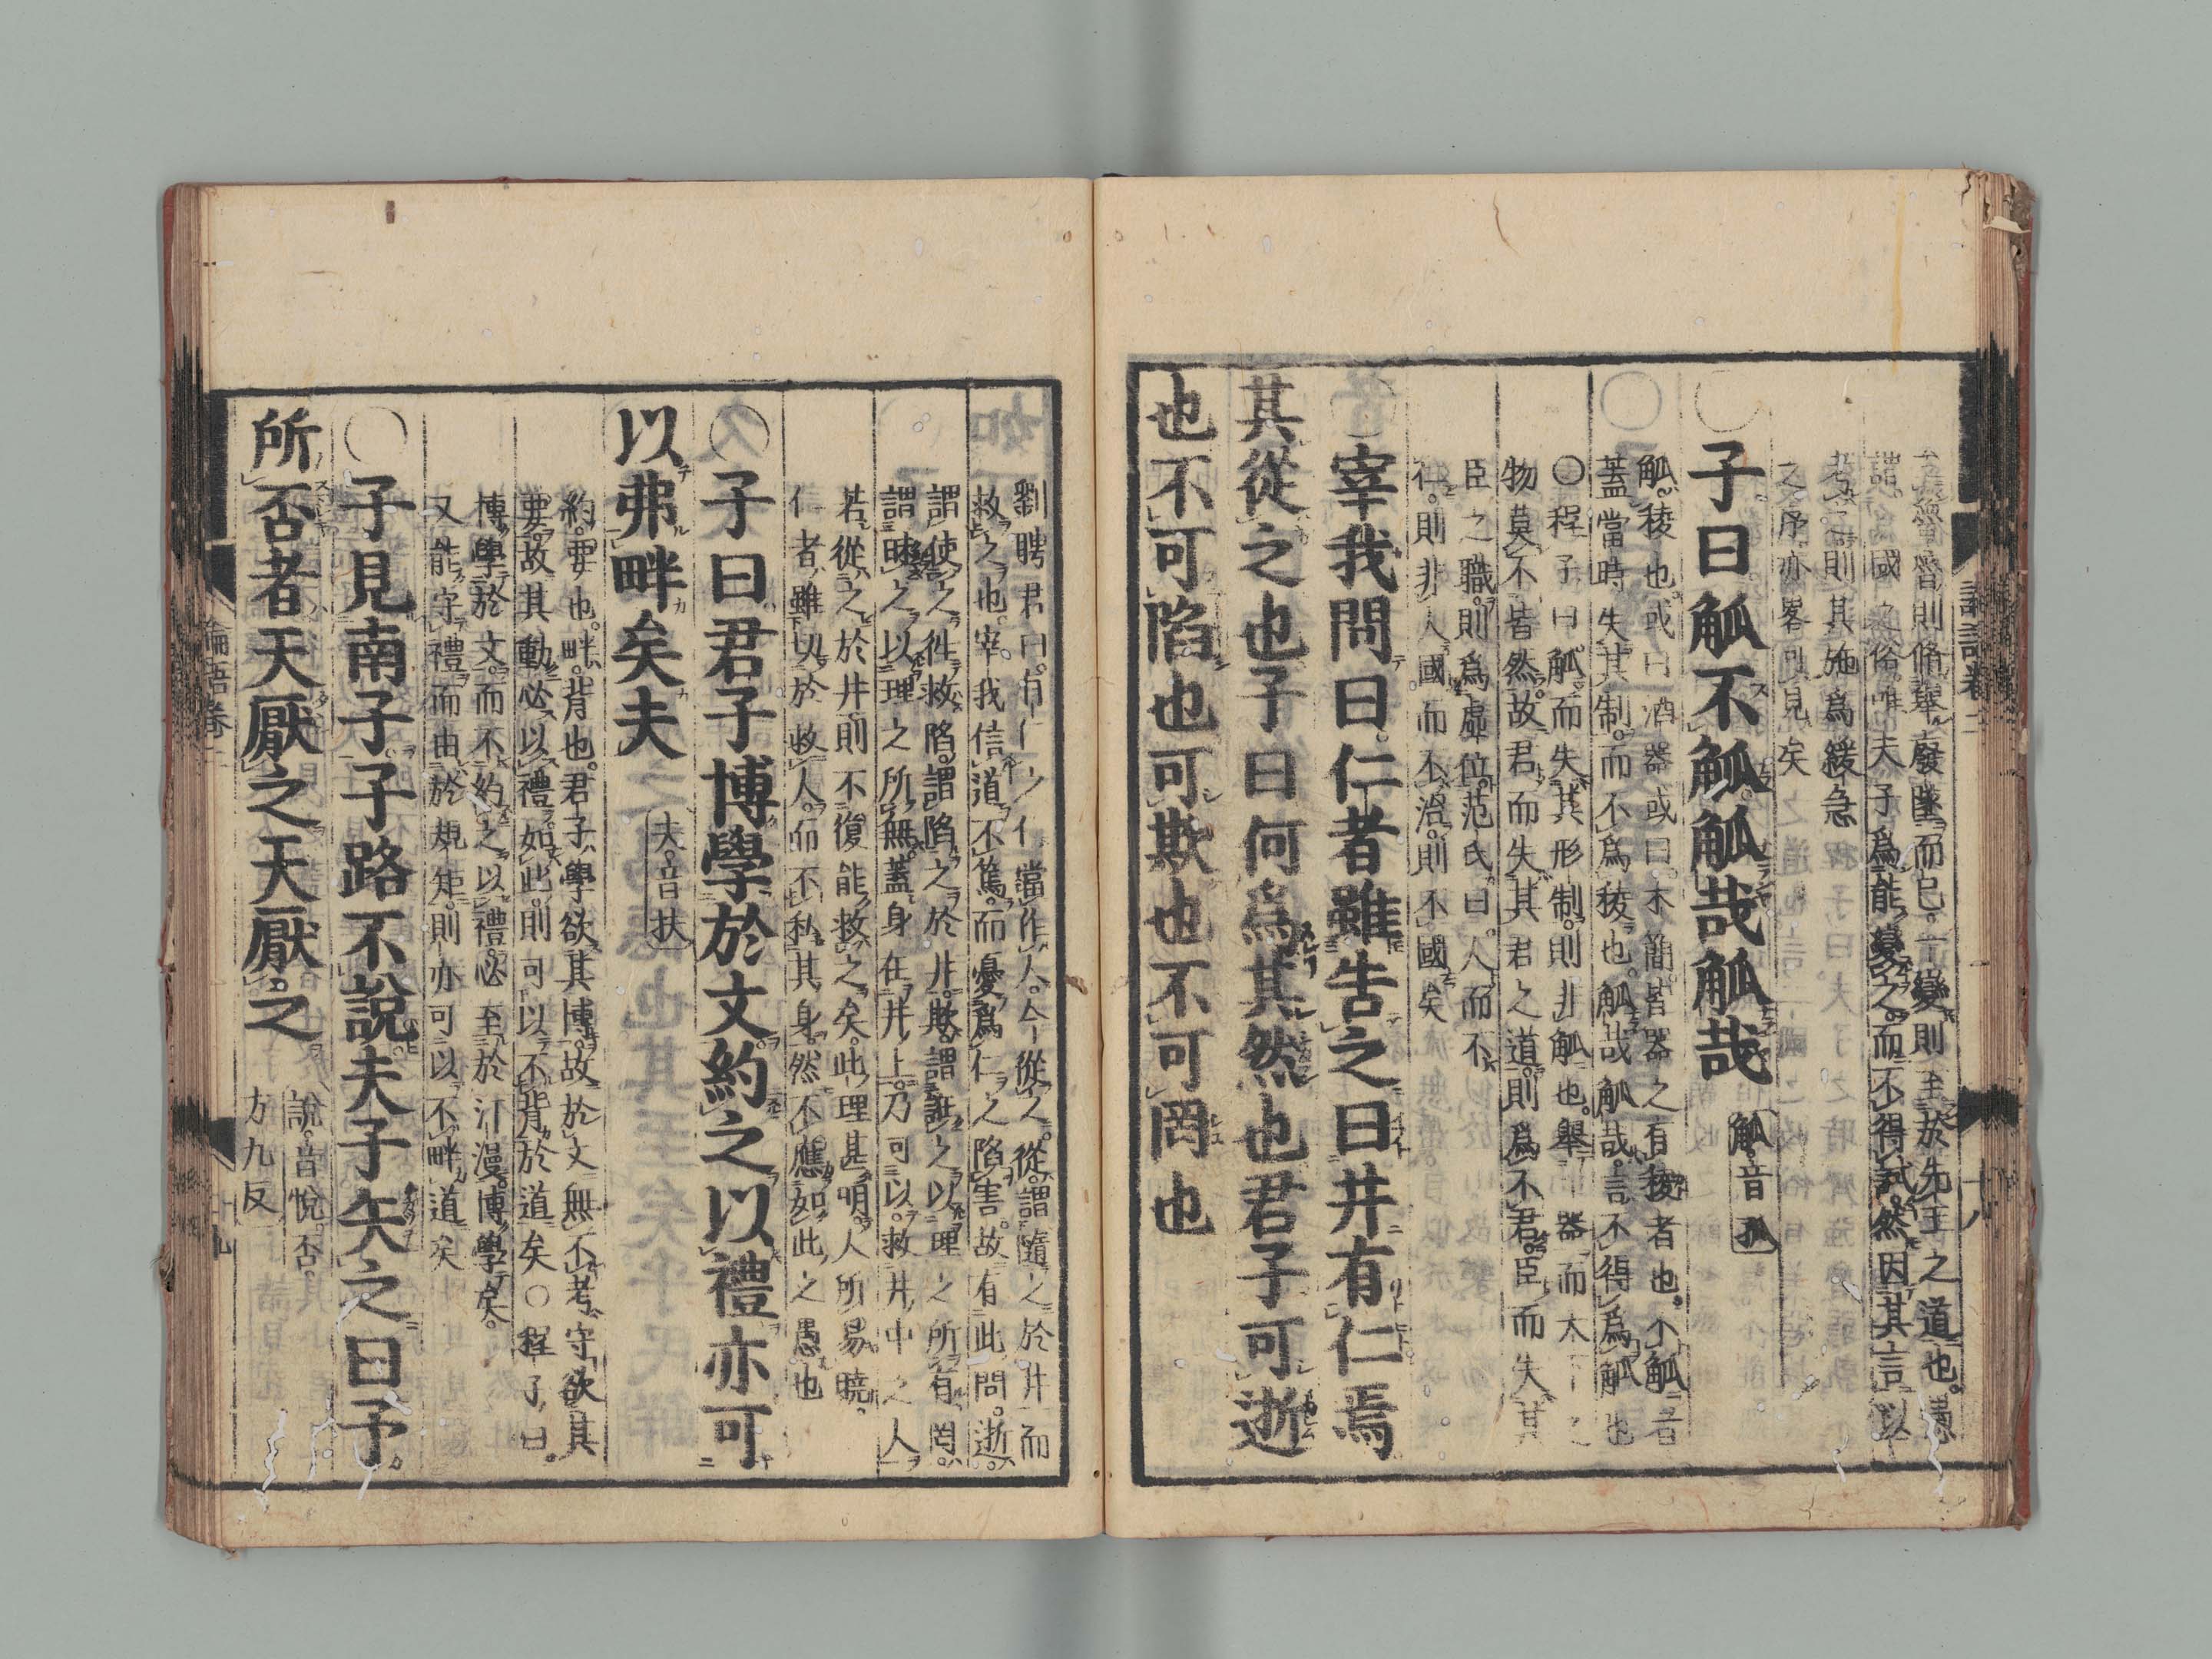 矣魯齊則脩擧廢墜而已一變則至於先王之道也愚
謂二國之俗唯夫子爲能變之而不得試然因其言以
考之則其施爲緩急
之序亦畧可見矣
○子曰觚不觚觚哉觚哉
觚音孤
觚稜也或曰酒器或曰木簡皆器之有稜者也不觚者
蓋當時失其制而不爲稜也觚哉觚哉言不得爲觚也
○程子曰觚而失其形制則非觚也擧一器而天下之
物莫不皆然故君而失其君之道則爲不君臣而失其
臣之職則爲虛位范氏曰人而不
仁則非人國而不治則不國矣
○宰我問曰仁者雖吿之曰井有仁焉
其從之也子曰何爲其然也君子可逝
也不可陷也可欺也不可罔也
劉聘君曰有仁之仁當作人今從之從謂隨之於井而
救之也宰我信道不篤而憂爲仁之陷害故有此問逝
謂使之徃救陷謂陷之於井欺謂誑之以理之所有罔
謂昧之以理之所無蓋身在井上乃可以救井中之人
若從之於井則不復能救之矣此理甚明人所易曉
仁者雖切於救人而不私其身然不應如此之愚也
○子曰君子博學於文約之以禮亦可
以弗畔矣夫
夫音扶
約要也畔背也君子學欲其博故於文無不考守欲其
要故其動必以禮如此則可以不背於道矣○程子曰
博學於文而不約之以禮必至於汗漫博學矣
又能守禮而由於規矩則亦可以不畔道矣
○子見南子子路不說夫子矢之曰予
所否者天厭之天厭之
說音悅否
方九反
論語卷二
十八
論語卷二
十九